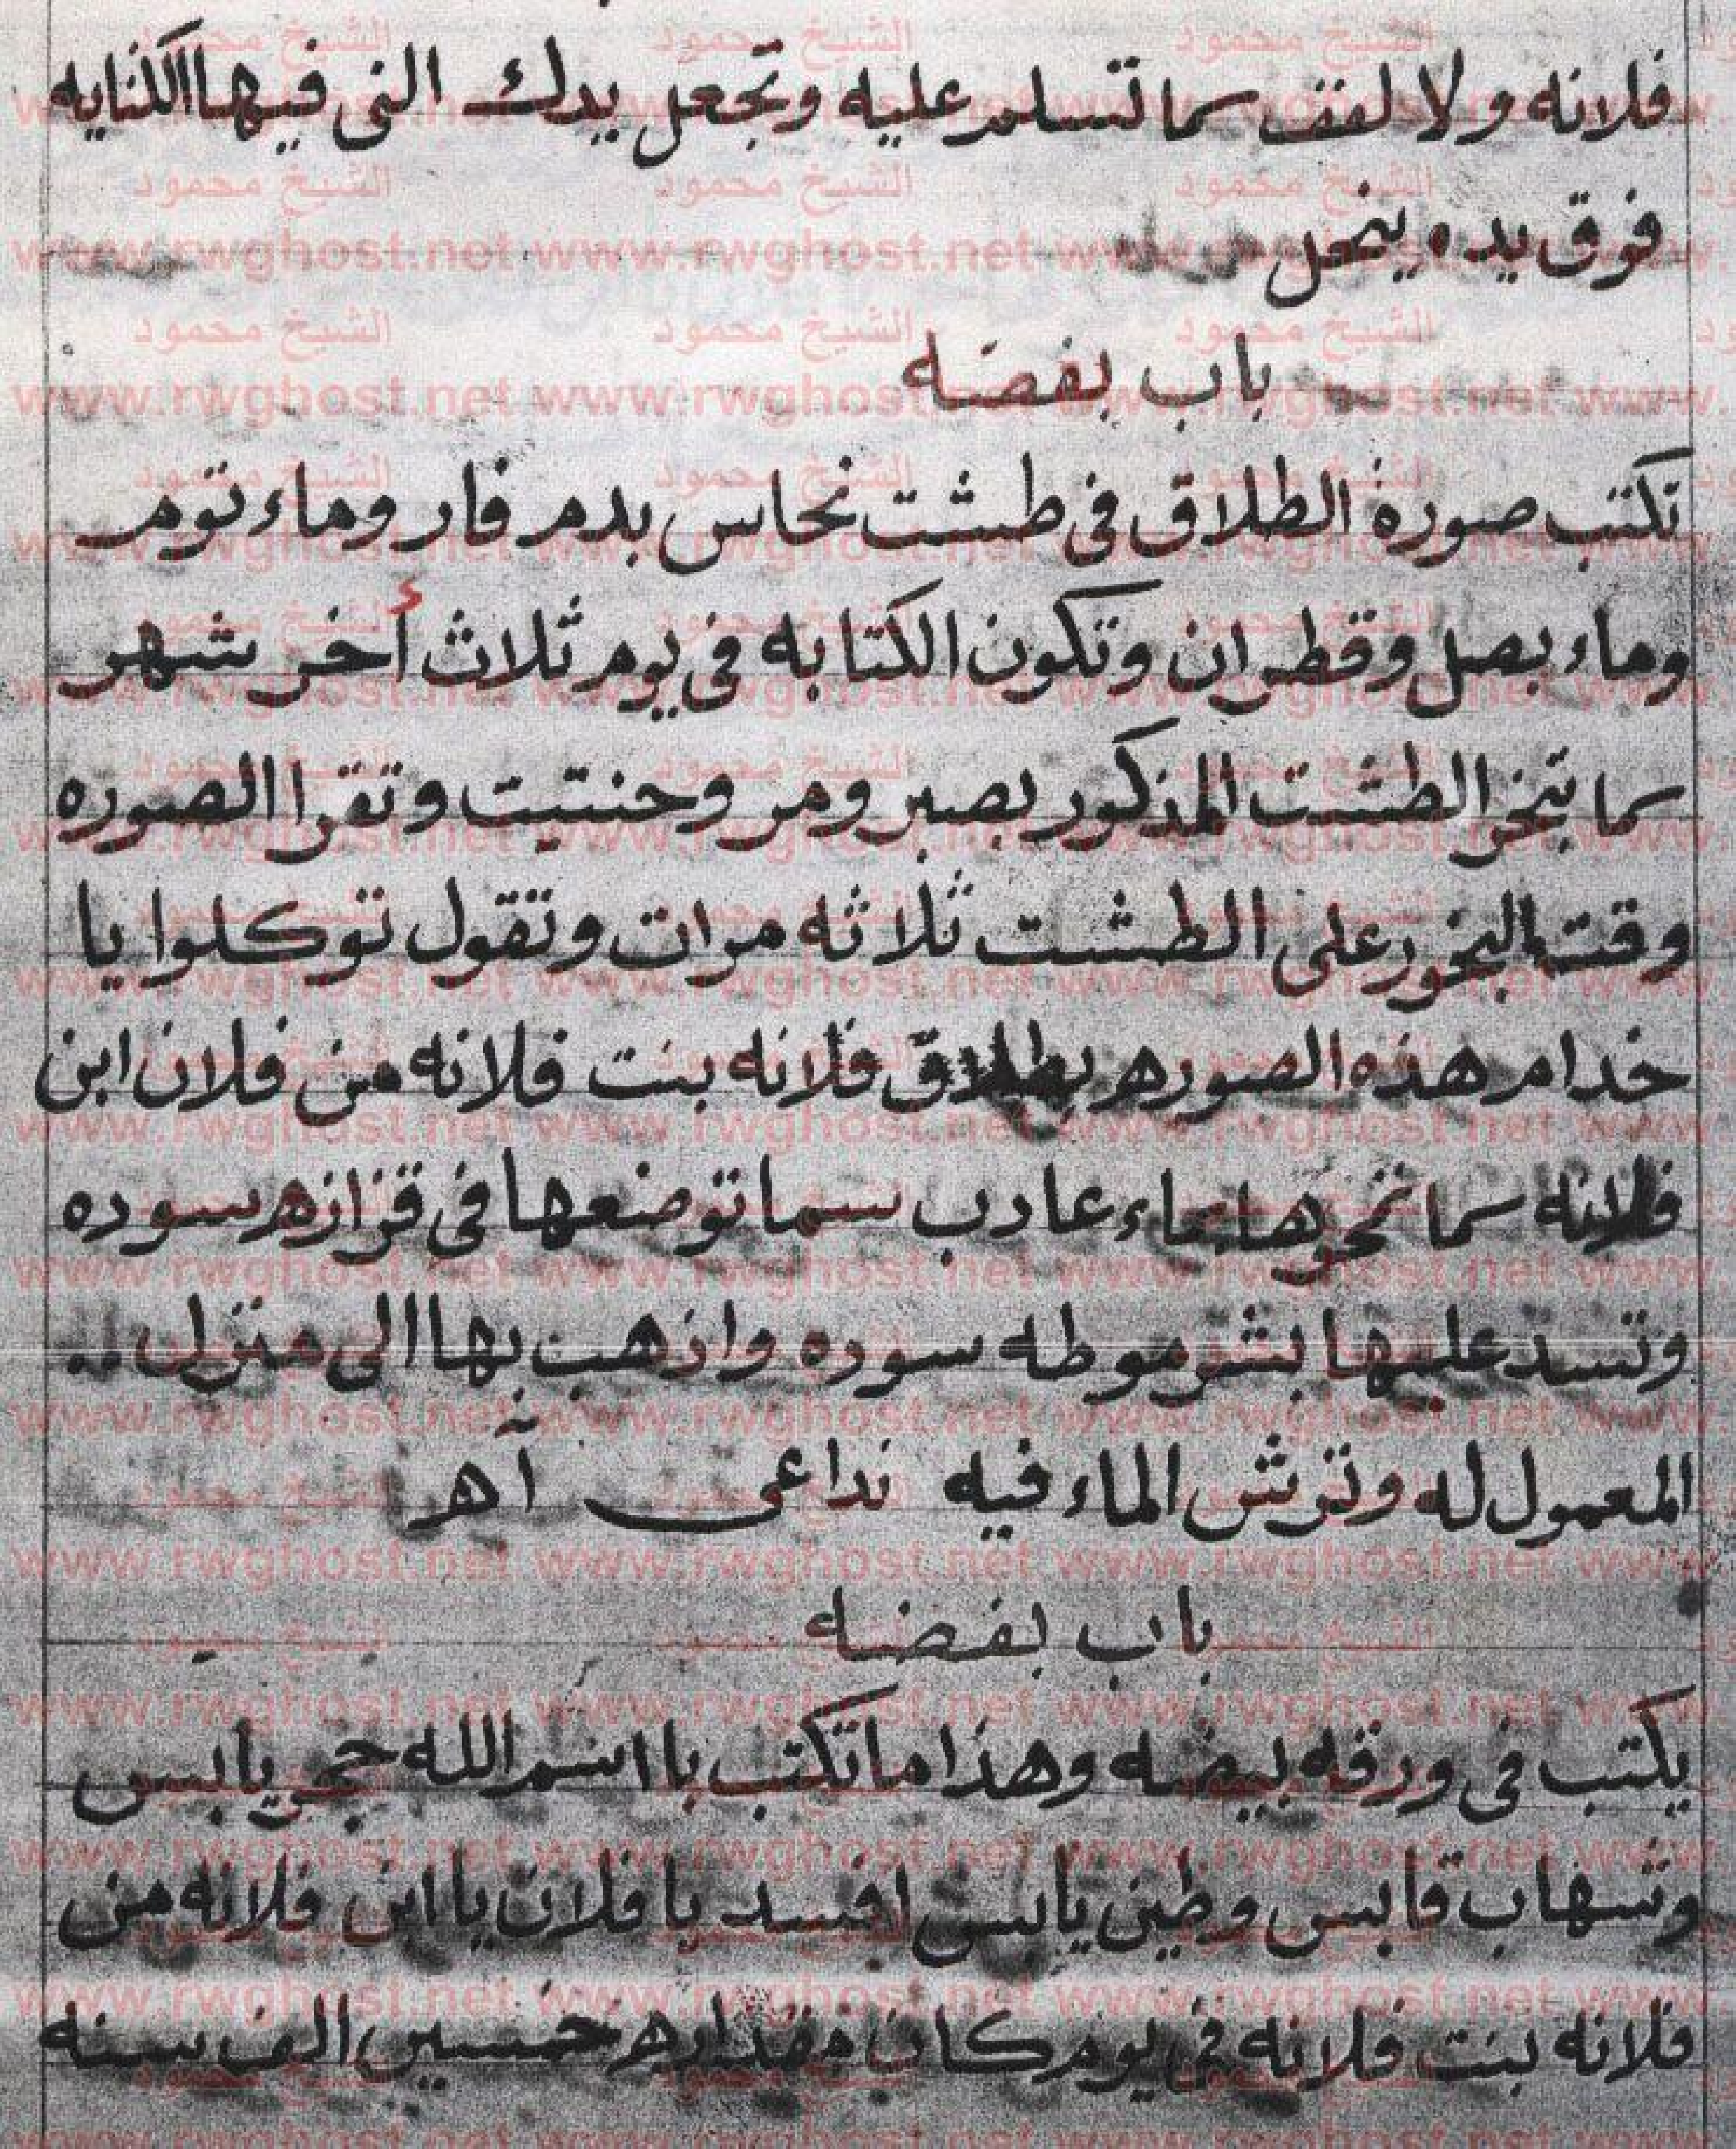 فلانه ولا لفف سما تسلم عليه وتجعل يدك التى فيها الكتابه
فوق يده ينحل
باب بغضه
تكتب صورة الطلاق فى طشت نحاس بدم فار وماء توم
وماء بصل وقطران وتكون الكتابه فى يوم ثلاث أخر شهر
سما تبخر الطشت المذكور بصبر ومر وحنتيت وتقرا الصوره
وقت البخور على الطشت ثلاثه مرات وتقول توكلوا يا
خدام هذه الصوره بطلاق فلانه بنت فلانه من فلان ابن
فلانه سما تمحوها بماء عادب سما توضعها فى قزازه سوده
وتسد عليها بشرموطه سوده واذهب بها الى منزل ..
المعمول له وترش الماء فيه تداعى آهـ
باب بغضه
يكتب فى ورقه بيضه وهذا ما تكتب با اسم الله حجر يابس
وشهاب قابس وطين يابس افسد يا فلان يا ابن فلانه من
فلانه بنت فلانه فى يوم كان مقداره خمسين الف سنه
الشيخ محمود
www.rwghost.net